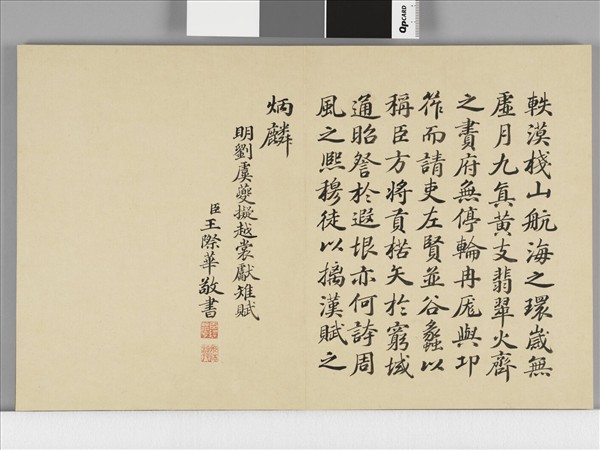 軼漠棧山航海之環歲無
虛月九真黃支翡翠火齊
之賫府無停輪冉駹與邛
筰而請吏左賢並谷蠡以
稱臣方將貢楛矢於窮域
通昭詧於遐垠亦何誇周
風之熙穆徒以摛漢賦之
炳麟
明劉虞夔擬越裳獻雉賦
臣王際華敬書
QPCARD